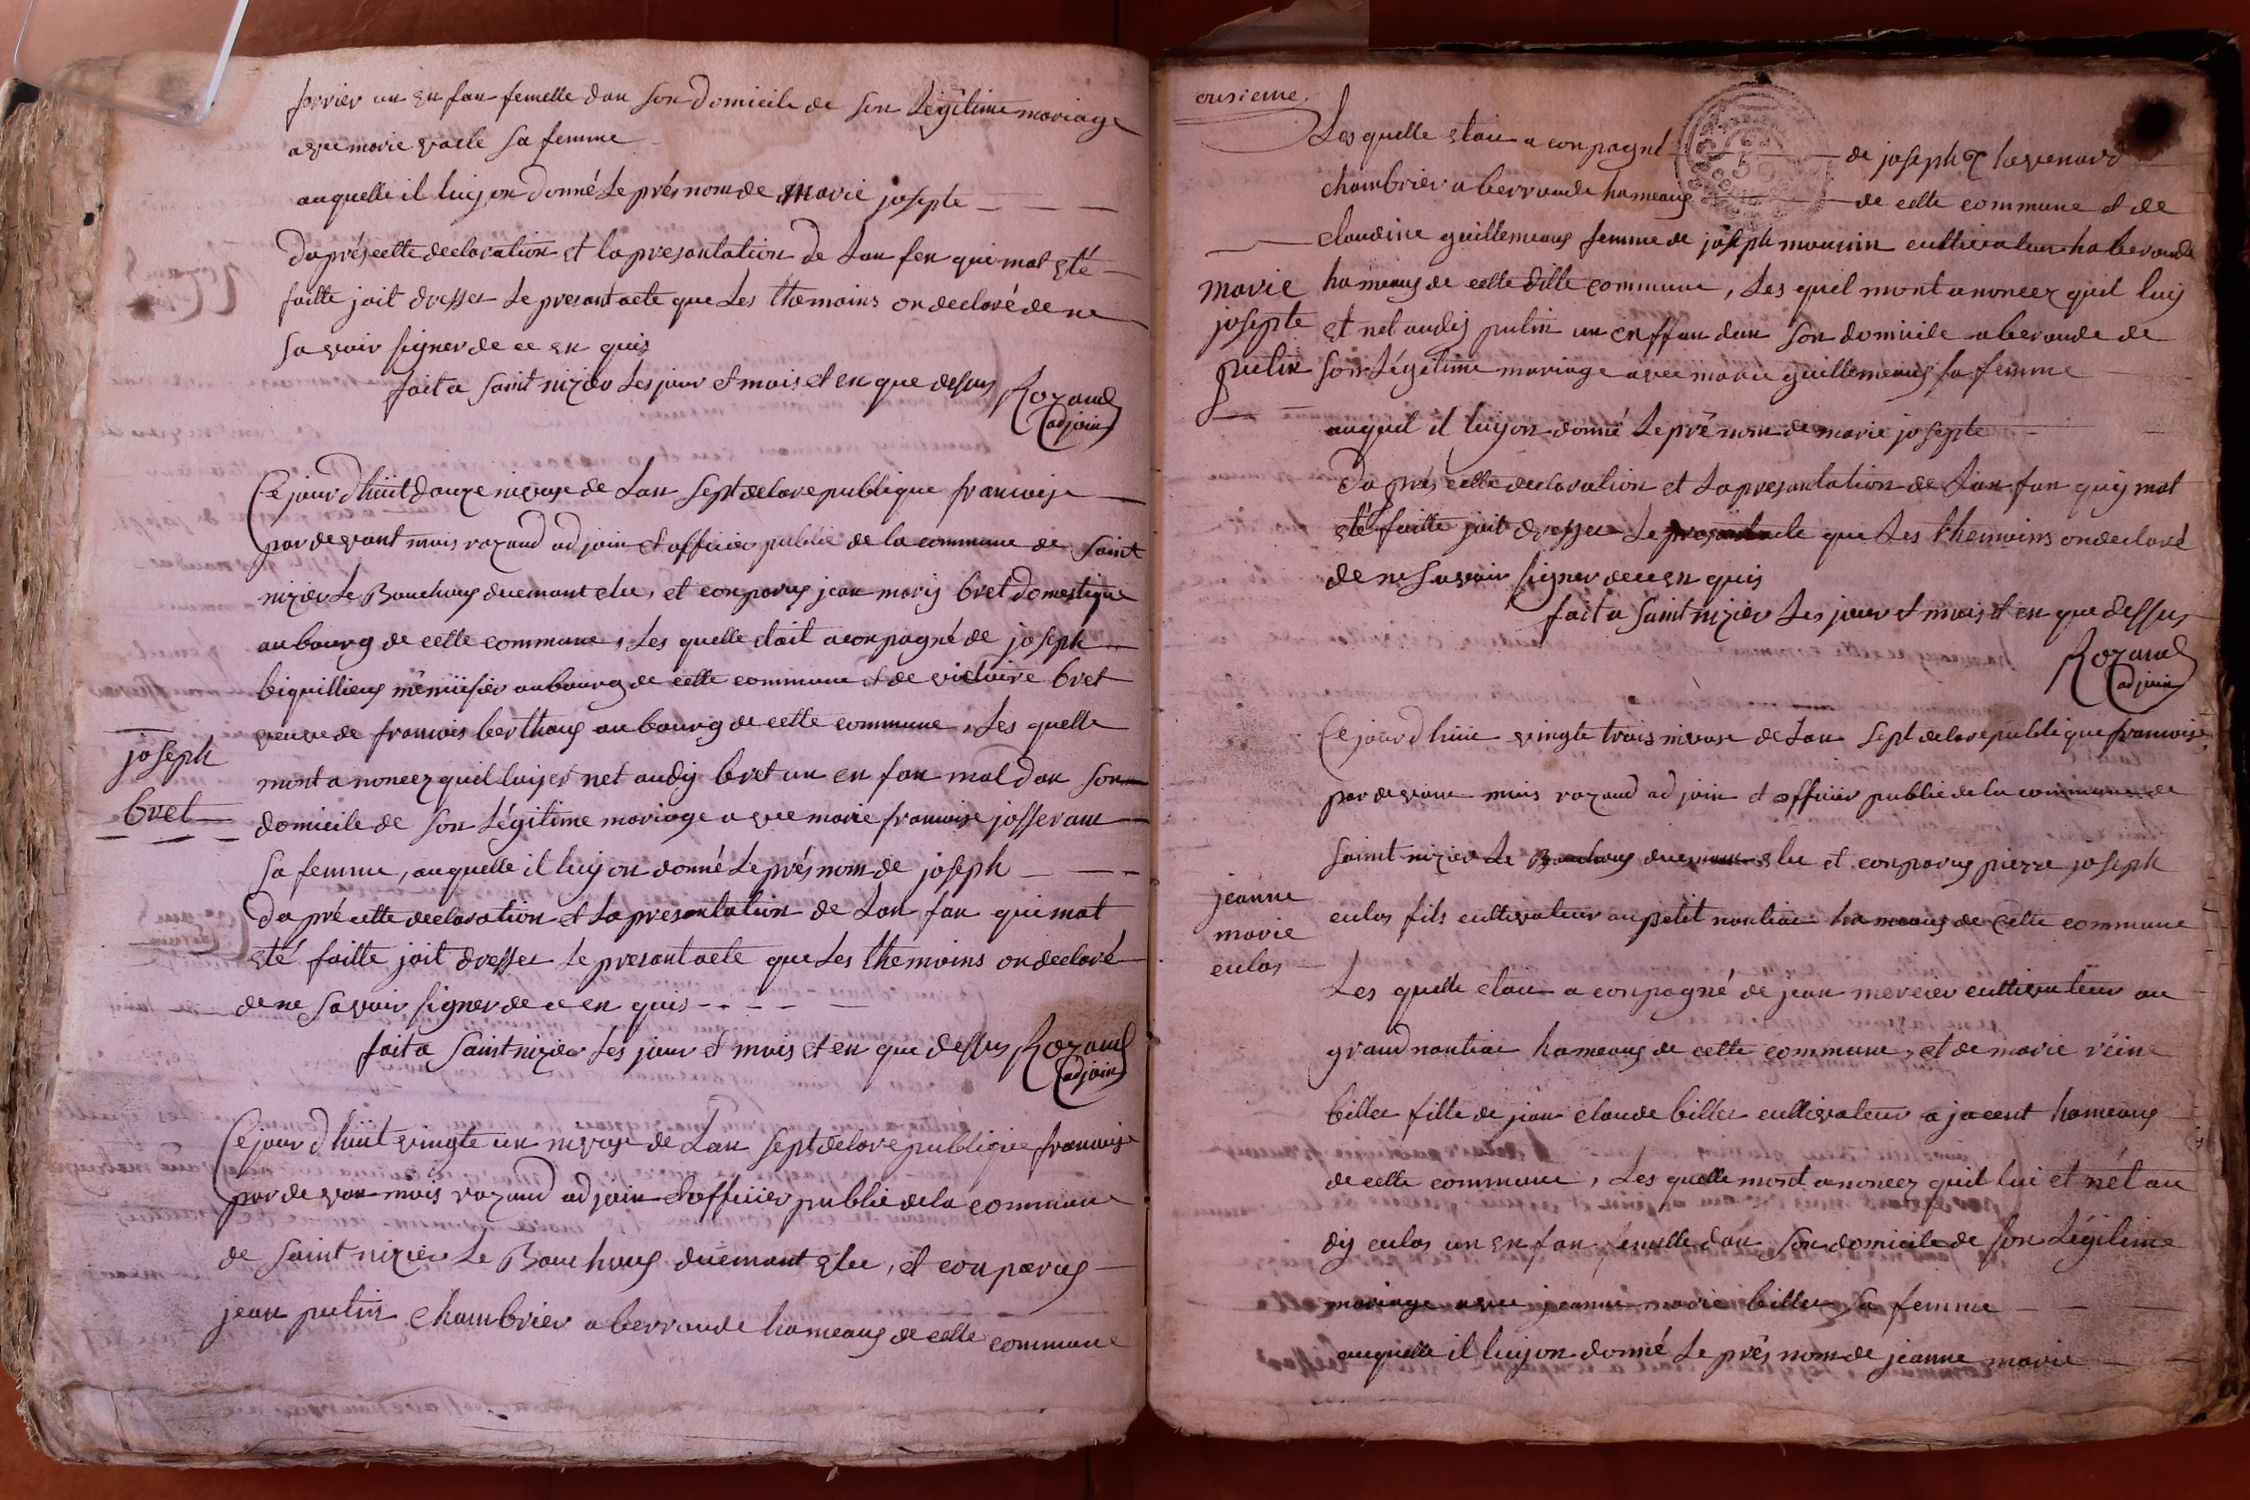 forrier un en fan femelle dan son domicile de son Légitime mariage
avec marie vaele sa femme
auquelle il luy on donné Le prés nom de marie josepte
Daprés cette declaration et la presantation de Lan fen qui mat eté
faitte jait dresser Le presant acte que Les themoins on declaré de ne
savoir signer de ce en quis
fait a saint nizier Les jour et mois et en que dessus Rozand
adjoin
Ce jour dhüit douze nivose de Lan sept de la republique francoise
par devant mois rozand adjoin et officier publie de la commune de saint
nizier Le Bouchoug duemant elu, et conparus jean marij bret domestique
au bourg de cette commune, Les quelle etait aconpagné de joseph
biguillieug menüisier au bourg de cette commune et de victoire bret
veuve de francois berthoug au bourg de cette commune, Les quelle
joseph
bret
mont anoncez quil luij et net audij bret un en fan mal dan son
domicile de son Légitime mariage avec marie francoise josserant
sa femme, auquelle il luij on donné Le prés nom de joseph
Da pré cette declaration et La presentation de Lan fan qui mat
eté faitte jait dresser Le presant acte que Les themoins on declaré
de ne savoir signer de ce en quis
fait a saint nizier Les jour et mois et en que dessus Rozand
adjoin
Ce jour dhüit vingte un nivose de Lan sept de la republique francoise
par devan mois rozand adjoin et officier publie de la commune
de saint nizier Le Bouchoug duemant elu, et conparus
jean putin chambrier a berroude hameaug de cette commune
onsieme
Les quelle etait aconpagné de joseph havenard
chambrier a berroude hameaug de cette commune et de
claudine guillemeaug femme de joseph mounin cultivateur ha beroude
marie
josepte
putin
hameaug de cette ditte commune, Les quil mont anoncez quil luij
et net audij putin un enffan dan son domicile a beroude de
son Légitime mariage avec marie guillemeaug sa femme
auquel il luij on donné Le pré nom de marie josepte
Da prés cette declaration et La presantation de Lan fan quij mat
eté faitte jait dresser Le presant acte que Les themoins on declaré
de ne savoir signer de ce en quis
fait a saint nizier Les jour et mois et en que dessus
Rozand
adjoin
Ce jour dhüi vingte trois nivose de Lan sept de la republique francoise
par devant mois rozand adjoin et officier publie de la commune de
saint nizier Le Bouchoug duemant elu et conparus pierre joseph
jeanne
marie
culas
culas fils cultivateur au petit nontiai hameaug de cette commune
Les quelle etait aconpagné de jean mercier cultivateur au
grand nontiai hameaug de cette commune, et de marie réine
billet fille de jean claude billet cultivateur a jacent hameaug
de cette commune, Les quelle mont anoncez quil lui et nét au
dij culas un en fan femelle dan son domicile de son Légitime
mariage avec jeanne marie billet sa femme
auquelle il luij on donné Le prés nom de jeanne marie